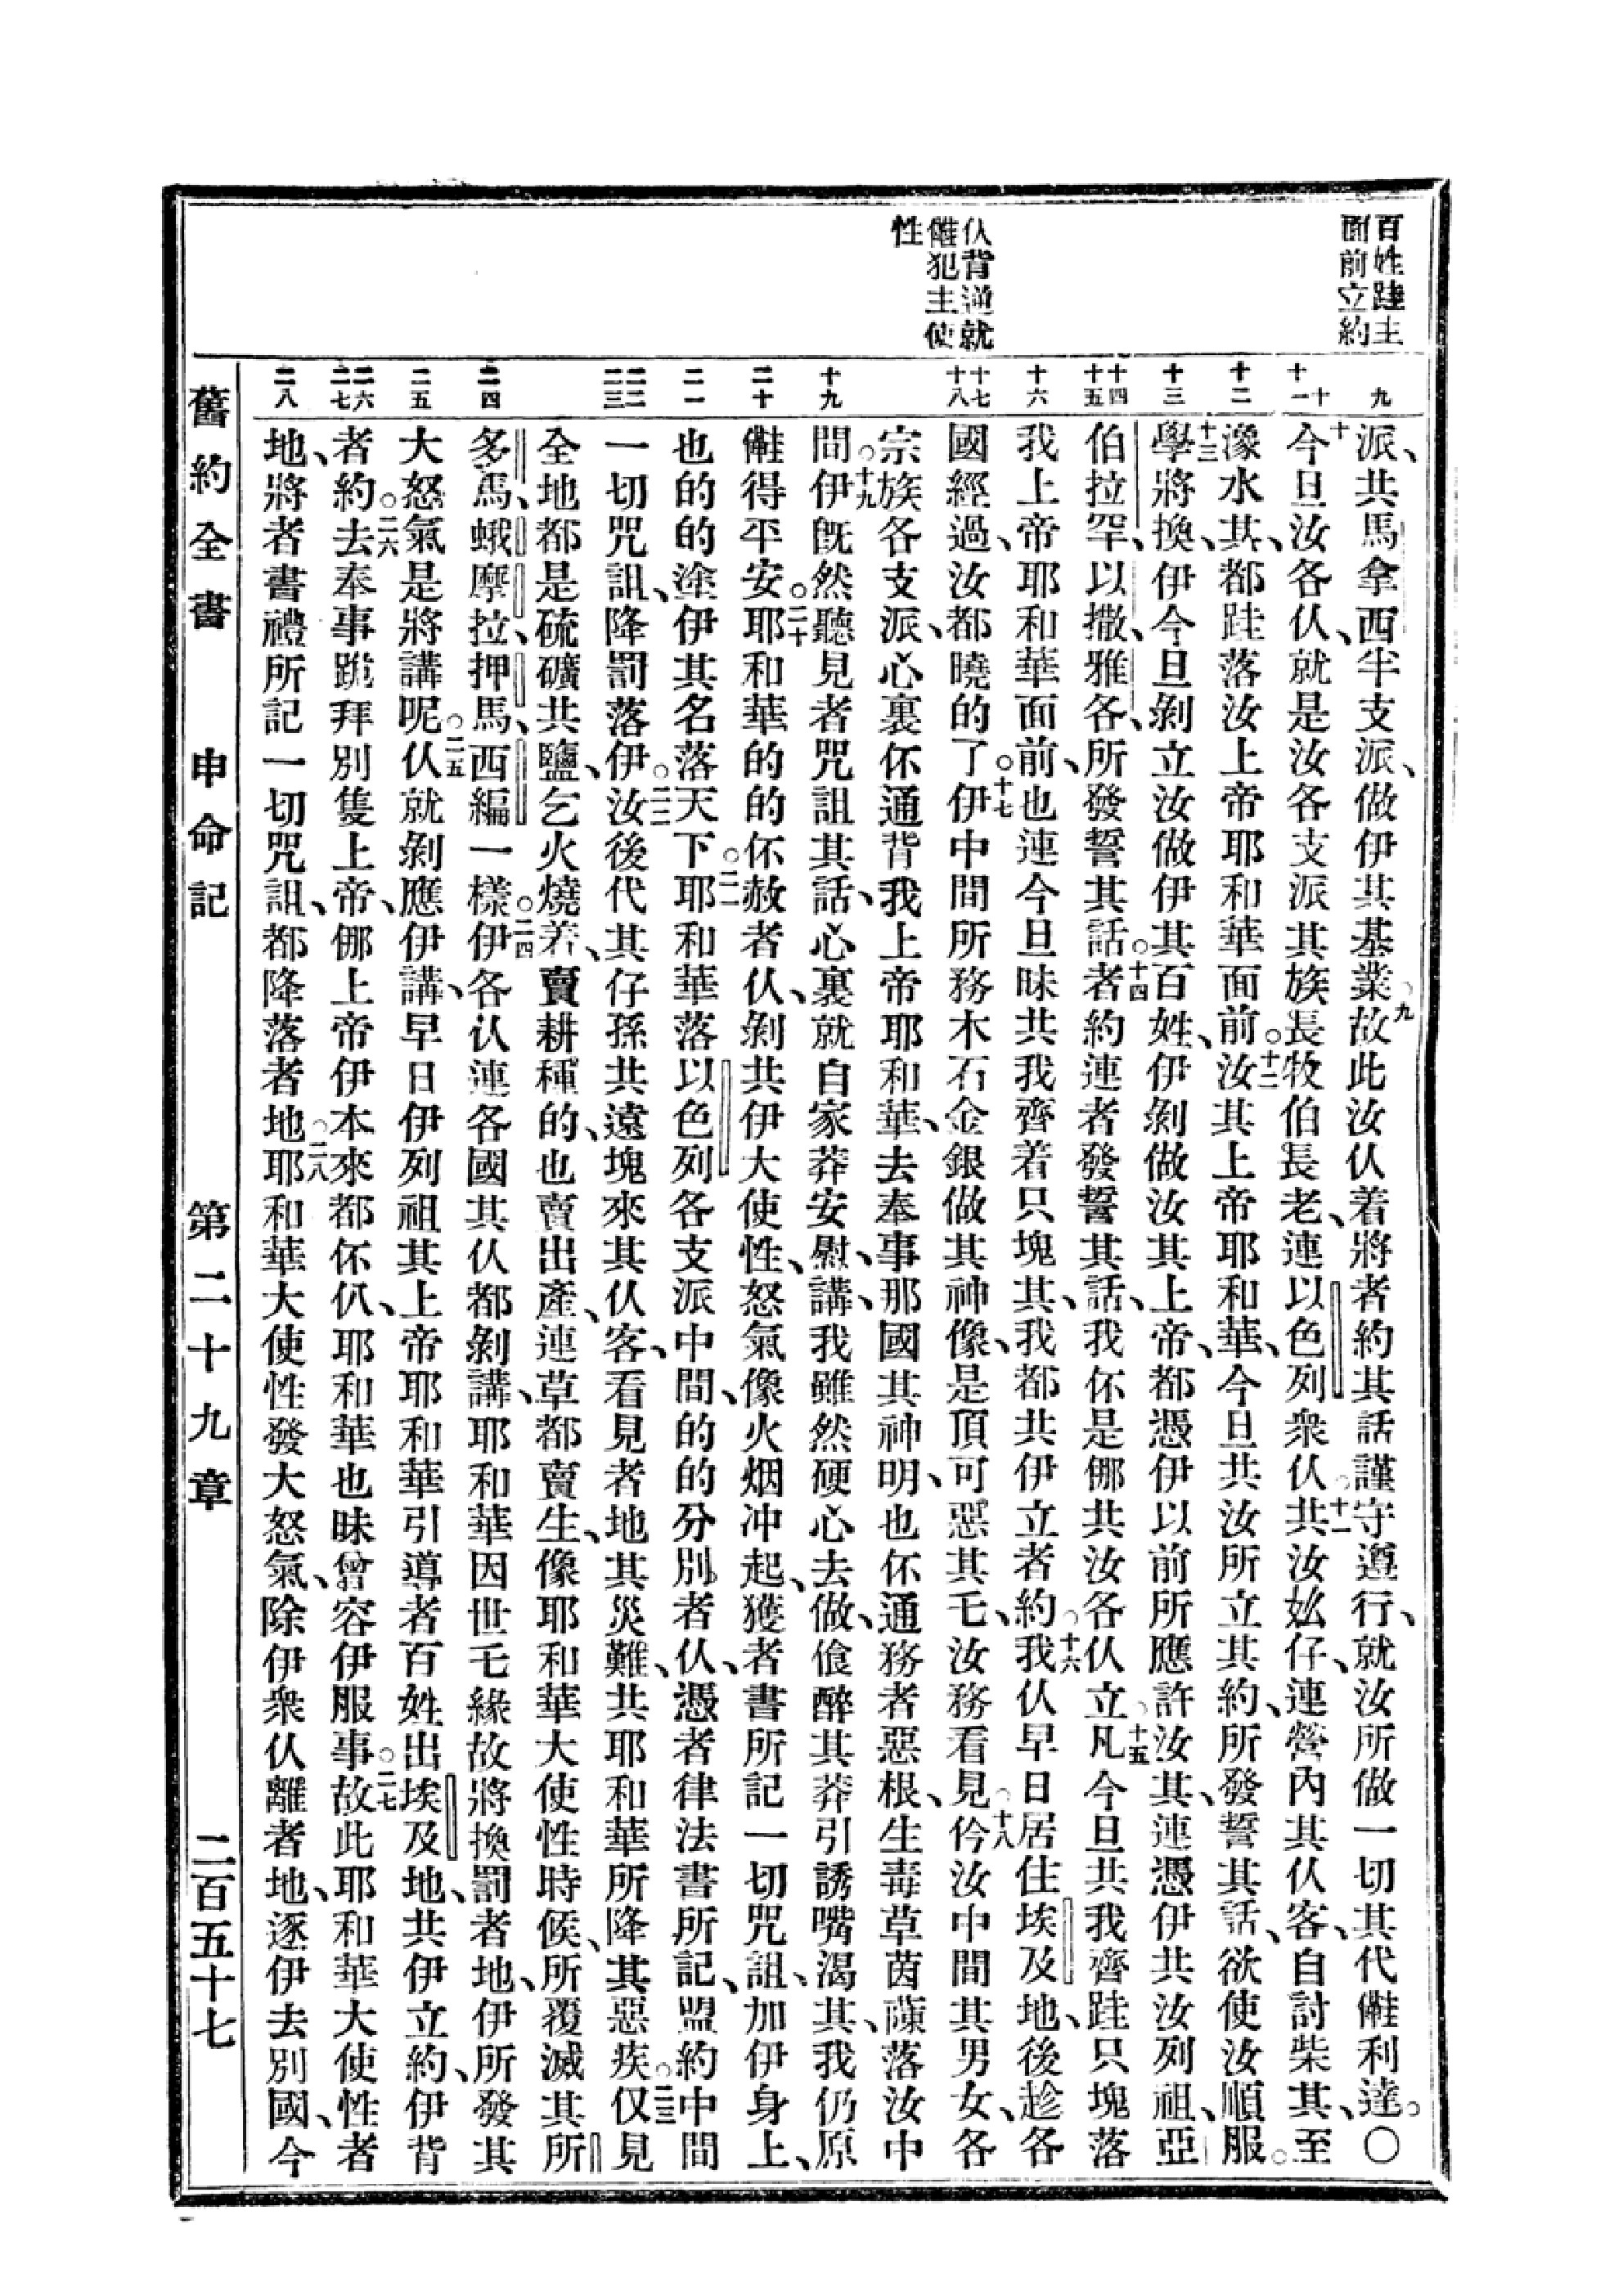 百姓跬主
面前立約
仈背逆就
㒕犯主使
性
九
十
十一
十二
十三
十四
十五
十六
十七
十八
十九
二十
二一
二二
二三
二四
二五
二六
二七
二八
派、共馬拿西半支派、做伊其基業○九故此汝仈着將者約其話謹守遵行、就汝所做一切其代㒕利達。○
十今旦汝各仈、就是汝各支派其族長牧伯長老、連以色列衆仈○十一共汝㚢仔、連營內其仈客、自討柴其、至
濠水其、都跬落汝上帝耶和華面前○十二汝其上帝耶和華、今旦共汝所立其約、所發誓其話、欲使汝順服。
十三學將換、伊今旦剝立汝做伊其百姓、伊剝做汝其上帝、都憑伊以前所應許汝其、連憑伊共汝列祖、亞
伯拉罕、以撒、雅各、所發誓其話○十四者約連者發誓其話、我伓是㑚共汝各仈立○十五凡今旦共我齊跬只塊落
我上帝耶和華面前、也連今旦昧共我齊着只塊其、我都共伊立者約○十六我仈早日居住埃及地、後趁各
國經過、汝都曉的了○十七伊中間所務木石金銀做其神像、是頂可惡其乇、汝務看見○十八仱汝中間其男女、各
宗族各支派、心裏伓通背我上帝耶和華、去奉事那國其神明、也伓通務者惡根、生毒草茵蔯落汝中
間○十九伊旣然聽見者咒詛其話、心裏就自家莽安慰、講、我雖然硬心去做、飡醉其莽引誘嘴渴其、我仍原
㒕得平安○二十耶和華的的伓赦者仈、剝共伊大使性、怒氣像火烟冲起、獲者書所記一切咒詛、加伊身上、
也的的塗伊其名落天下○二一耶和華落以色列各支派中間、的的分別者仈、憑者律法書所記、盟約中間
一切咒詛、降罰落伊○二二汝後代其仔孫共遠塊來其仈客、看見者地其災難、共耶和華所降其惡疾○二三仅見
全地都是硫礦共鹽、乞火燒着、賣耕種的、也賣出產、連草都賣生、像耶和華大使性時候、所覆滅其所
多馬、蛾摩拉、押馬、西編一樣○二四伊各仈連各國其仈都剝講、耶和華因世乇緣故將換罰者地、伊所發其
大怒氣是將講呢○二五仈就剝應伊講、早日伊列祖其上帝耶和華引導者百姓出埃及地、共伊立約、伊背
者約○二六去奉事跪拜別隻上帝、㑚上帝伊本來都伓仈、耶和華也昧曾容伊服事○二七故此耶和華大使性者
地、將者書禮所記一切咒詛、都降落者地○二八耶和華大使性發大怒氣、除伊衆仈離者地、逐伊去別國、今
舊約全書　申命記　第二十九章　二百五十七